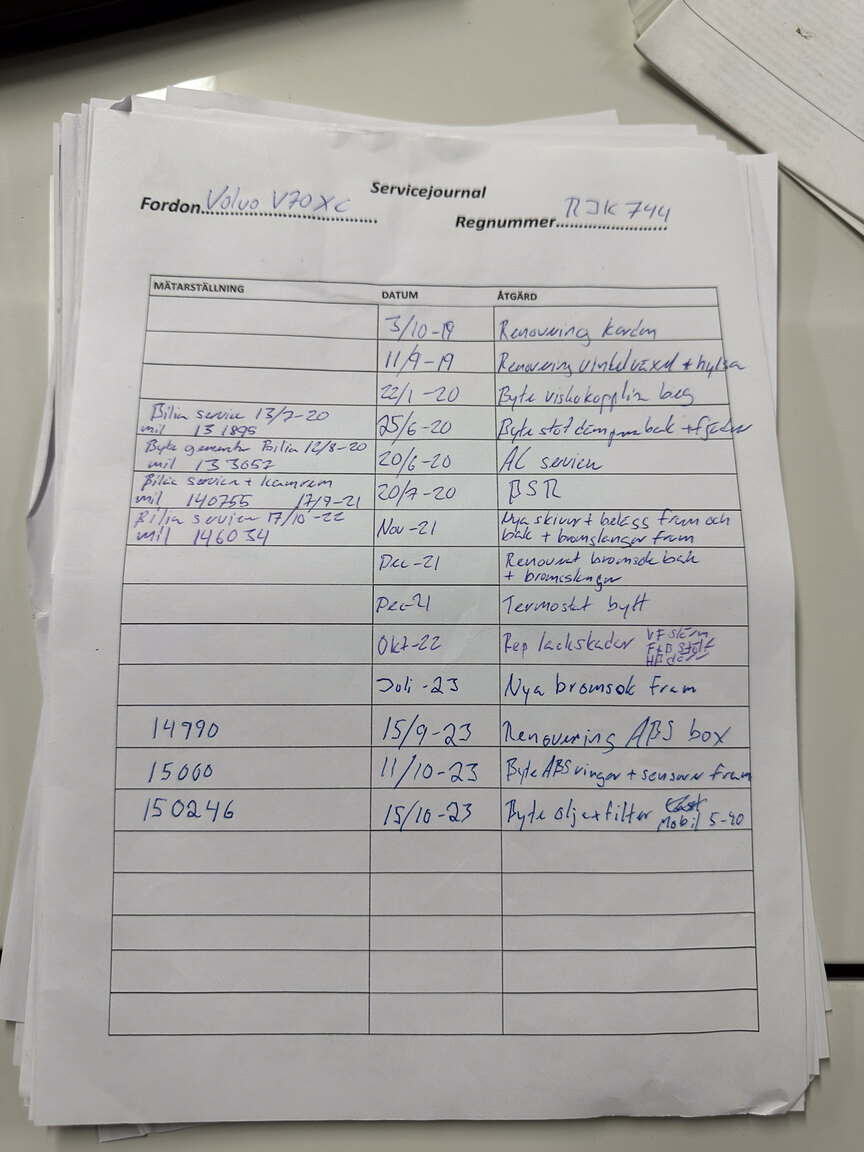 Servicejournal
Fordon Volvo V70 XC
Regnummer RJK 744
MÄTARSTÄLLNING DATUM ÅTGÄRD
3/10-19 Renovering kardan
11/9-19 Renovering vinkelväxel + hylsa
22/1-20 Byte viskokopplin beg
Bilia service 13/7-20
mil 131895
25/6-20 Byte stötdämpare bak + fjäder
Byte generator Bilia 12/8-20
mil 133057
20/6-20 AC service
Bilia service + kamrem
mil 140755 17/9-21
20/7-20 BSR
Bilia service 17/10-22
mil 146034
Nov-21 Nya skivor + belägg fram och
bak + bromslangar fram
Dec-21 Renoverat bromsok bak
+ bromsslangar
Dec-21 Termostat bytt
Okt-22 Rep lackskador VF skärm
F+B stötf
HB dörr
Juli-23 Nya bromsok fram
14790 15/9-23 Renovering ABS box
15000 11/10-23 Byte ABS ringar + sensorer fram
150246 15/10-23 Byte olja+filter
Mobil 5-40